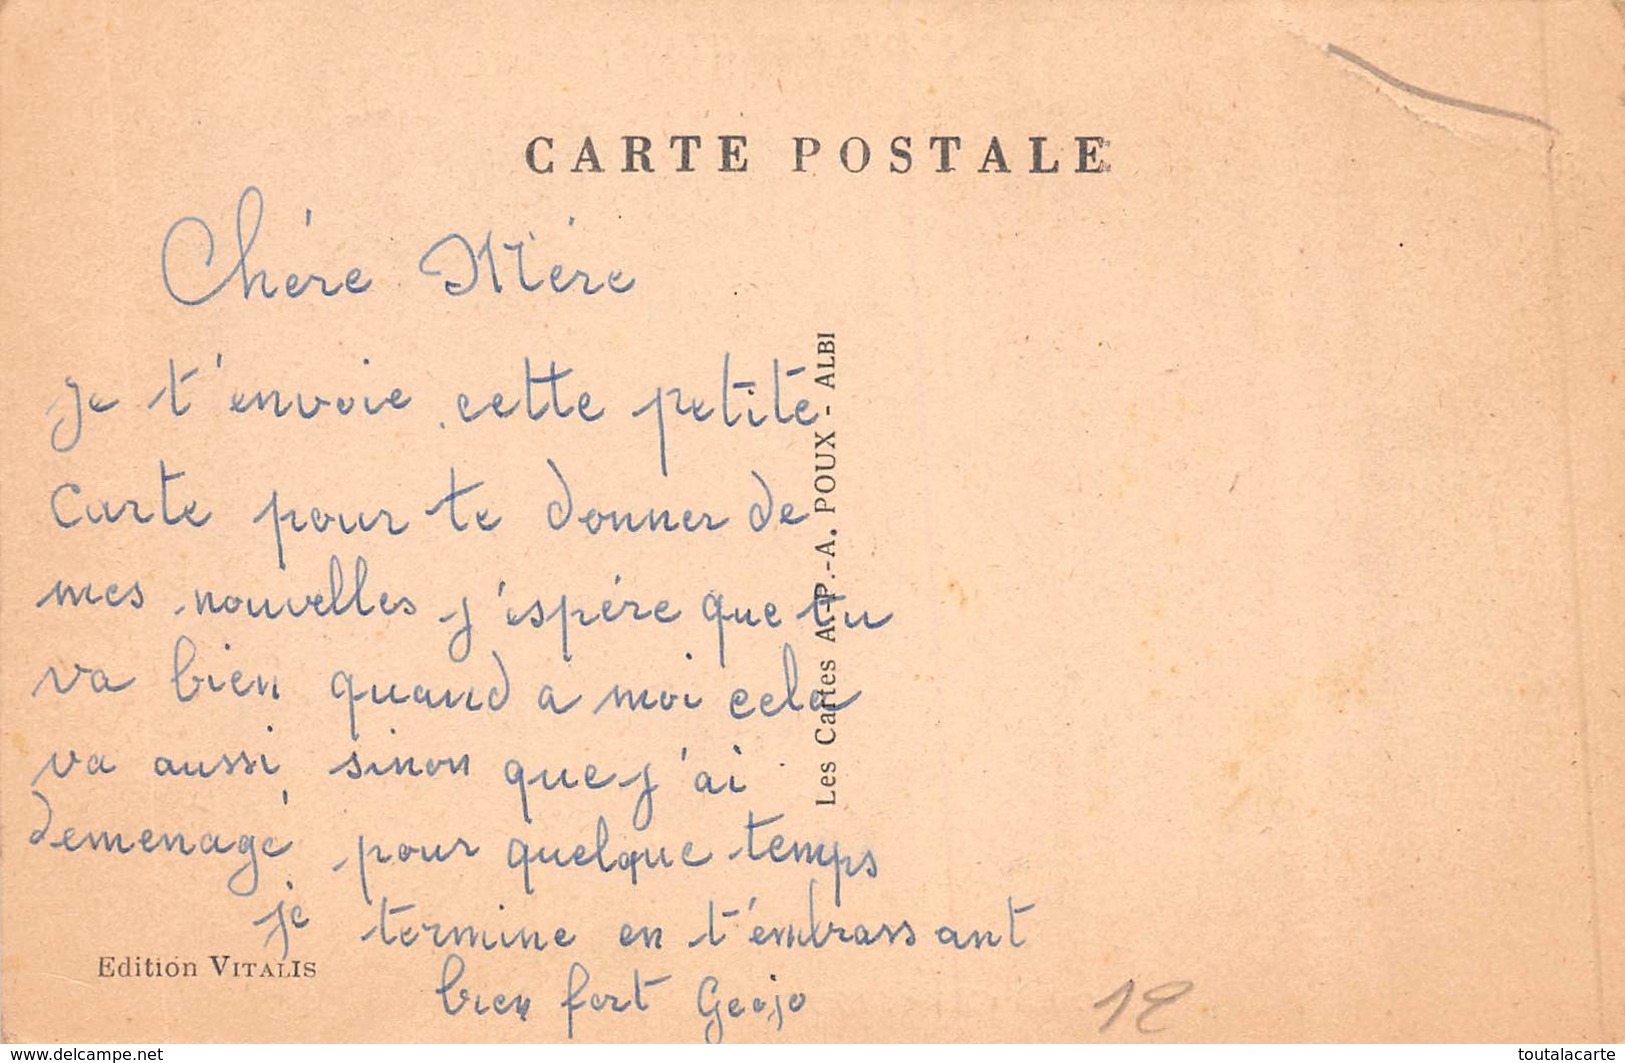 CARTE POSTALE
Chére Mére
je t'envoie cette petite
Carte pour te donner de
mes nouvelles j'espére que tu
va bien quand a moi cela
va aussi sinon que j'ai
demenagé pour quelque temps
je termine en t'embrassant
bien fort
Les Cartes A.-P.-A. POUX - ALBI
Edition VITALIS
www.delcampe.net
toutalacarte